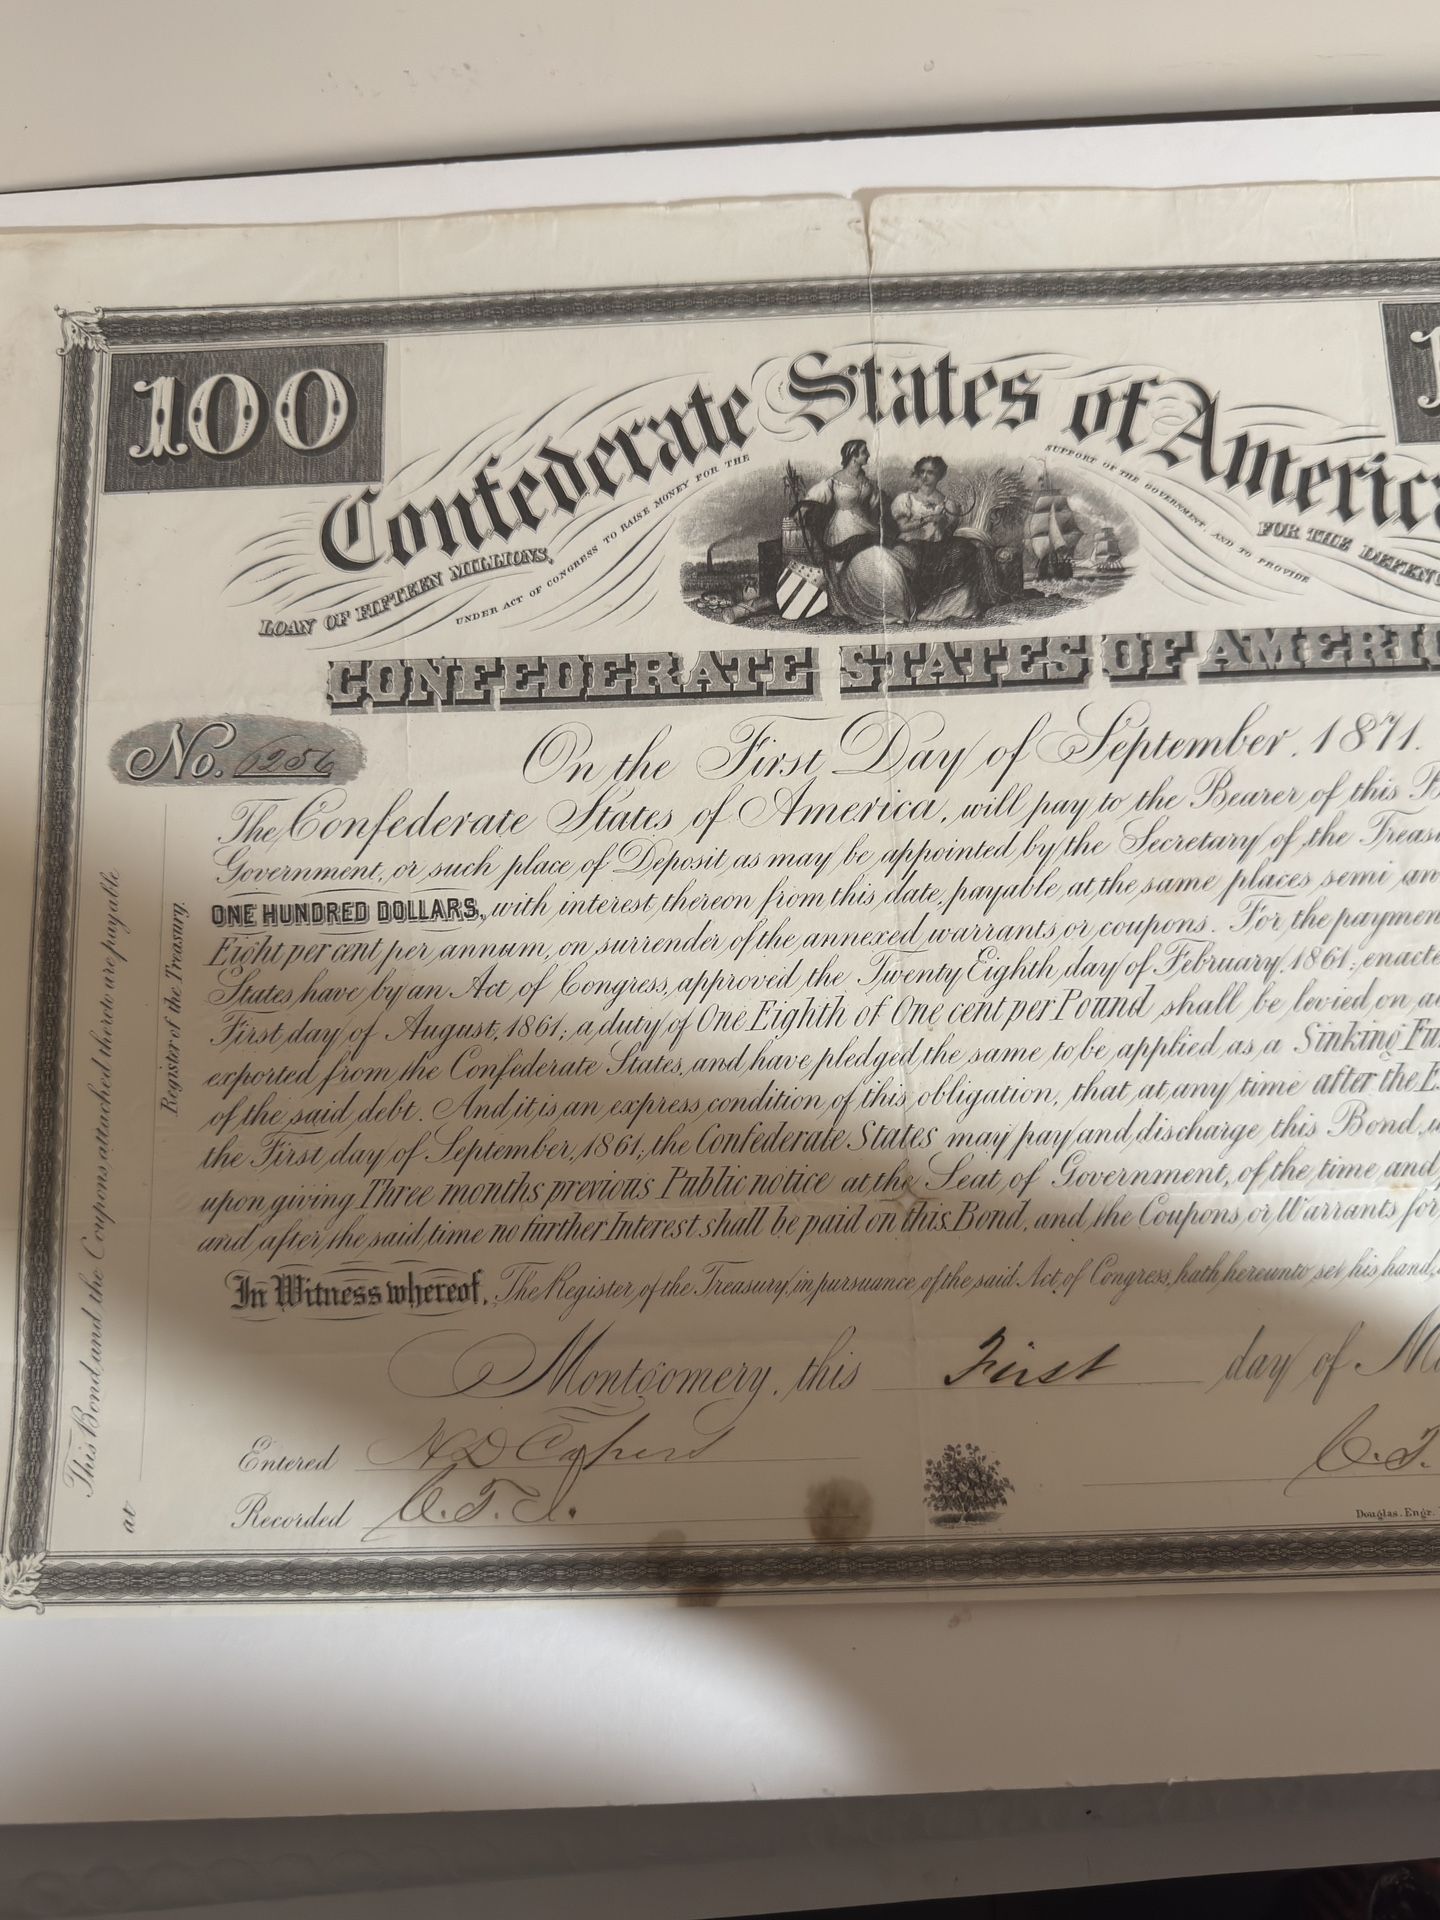 100
1
Confederate States of America
LOAN OF FIFTEEN MILLIONS,
UNDER ACT OF CONGRESS TO RAISE MONEY FOR THE
SUPPORT OF THE GOVERNMENT, AND TO PROVIDE
FOR THE DEFEN
CONFEDERATE STATES OF AMERIC
No. 6256
On the First Day of September, 1871.
The Confederate States of America, will pay to the Bearer of this B
Government, or such place of Deposit, as may be appointed by the Secretary of the Treas
ONE HUNDRED DOLLARS, with interest thereon from this date, payable at the same places semi an
Eight per cent per annum, on surrender of the annexed warrants or coupons. For the paymen
States, have by an Act of Congress, approved the Twenty Eighth day of February, 1861; enacte
First day of August, 1861; a duty of One Eighth of One cent per Pound shall be levied on a
exported from the Confederate States, and have pledged the same to be applied as a Sinking Fu
of the said debt. And it is an express condition of this obligation, that at any time after the E
the First day of September, 1861, the Confederate States may pay and discharge this Bond,
upon giving Three months previous Public notice at the Seat of Government, of the time and
and after the said time no further Interest shall be paid on this Bond, and the Coupons, or Warrants for
In Witness whereof, The Register of the Treasury, in pursuance of the said Act, of Congress, hath hereunto set his hand,
Montgomery, this First day of M
Entered
Recorded C. T. J.
C. T.
Douglas. Engr.
This Bond and the Coupons attached thereto are payable
at
Register of the Treasury.